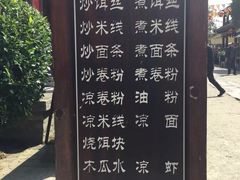 炒饵丝 煮饵丝
炒米线 煮米线
炒面条 煮面条
炒卷粉 煮卷粉
凉卷粉 油粉
凉米线 凉面
烧饵块
木瓜水 凉虾